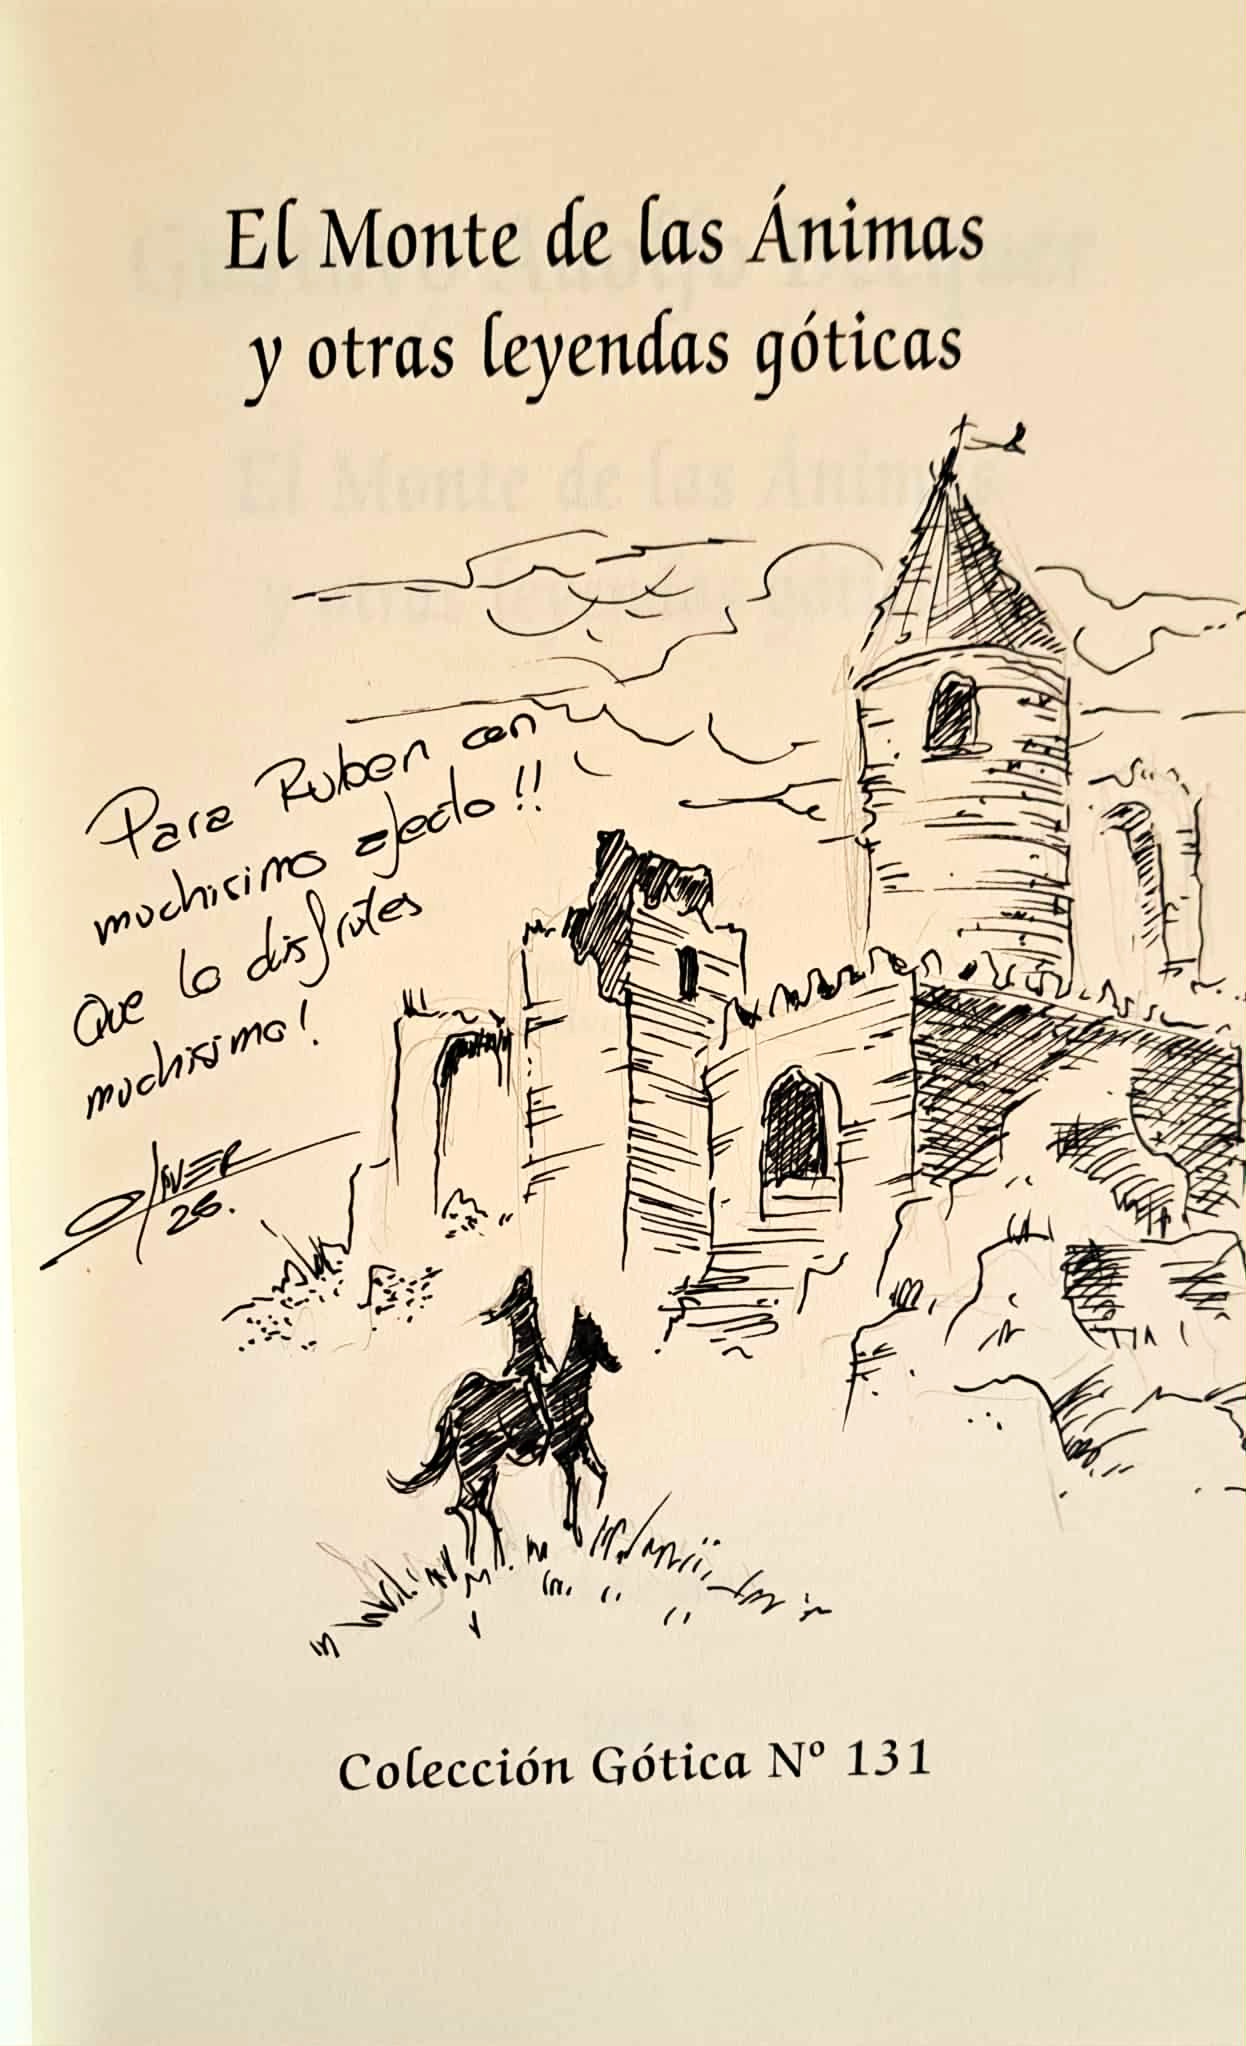 El Monte de las Ánimas
y otras leyendas góticas
Para Ruben con
muchisimo afecto!!
Que lo disfrutes
muchisimo!
25.
Colección Gótica Nº 131